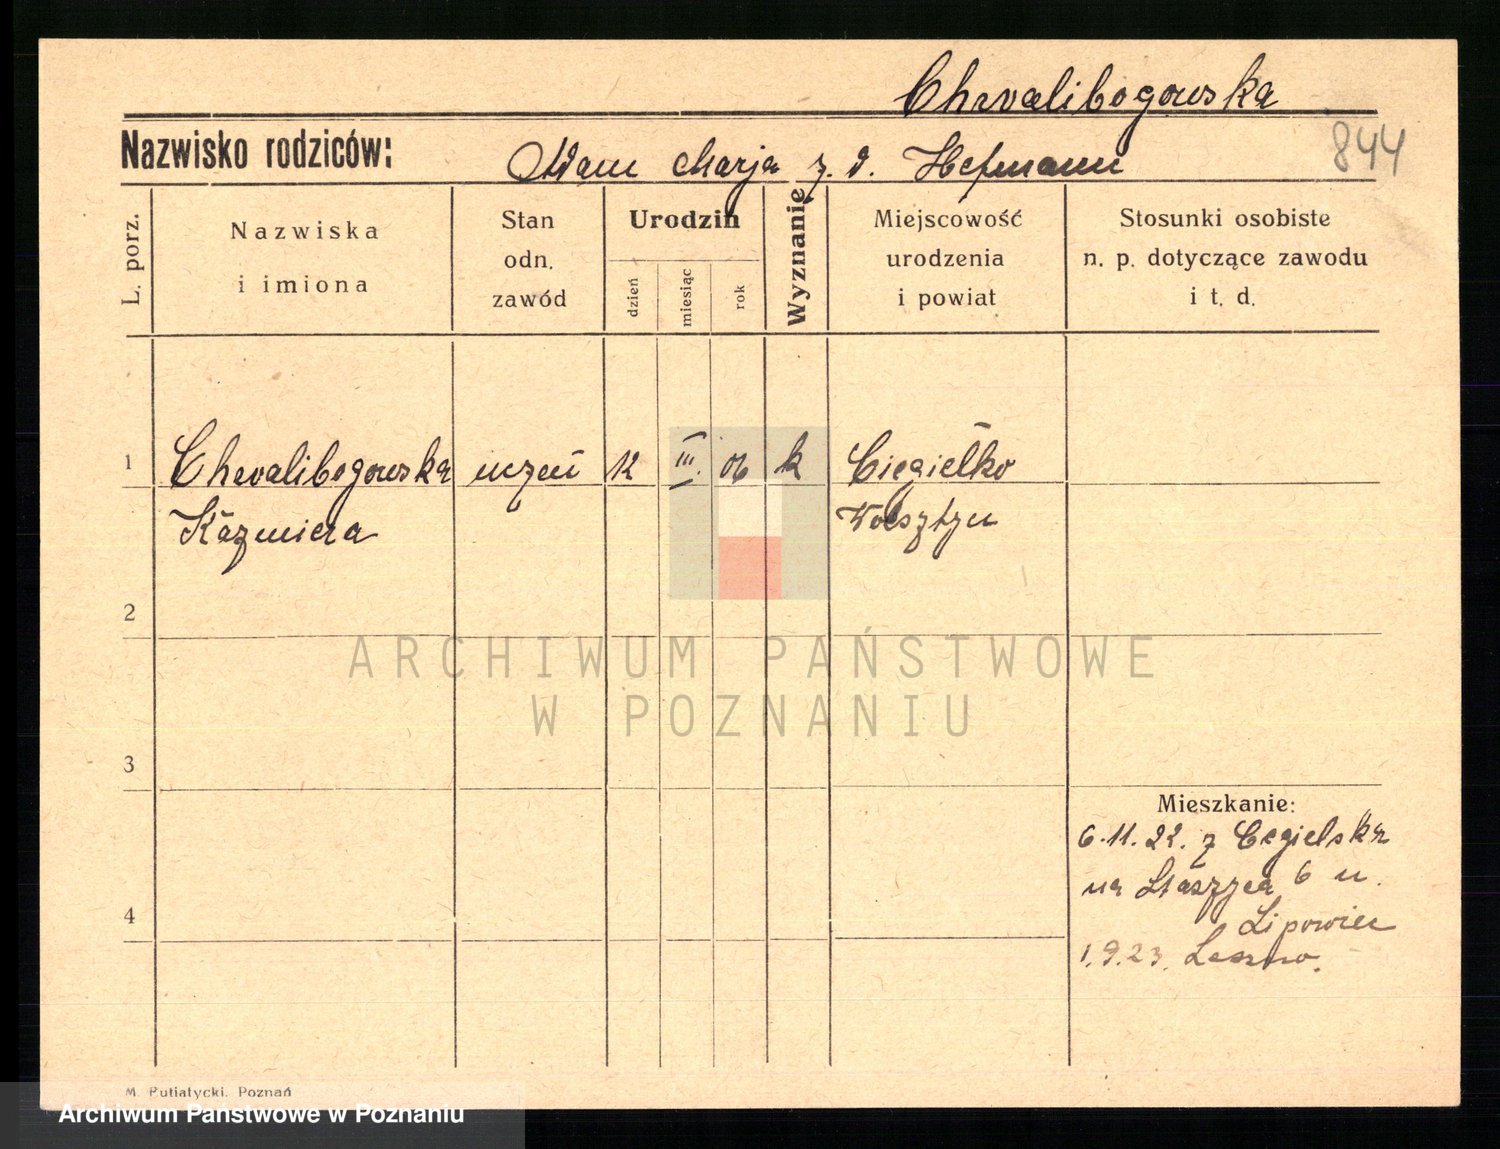 Chrvalibogowska
Nazwisko rodziców: Adam Marja z. d. Hofmann
844
L. porz.
Nazwiska
i imiona
Stan
odn.
zawód
Urodzin
dzień
miesiąc
rok
Wyznanie
Miejscowość
urodzenia
i powiat
Stosunki osobiste
n. p. dotyczące zawodu
i t. d.
1 Chrvalibogowska uczeń 12 III. 06 k
Kazmiera Wolsztyn
2
ARCHIWUM PAŃSTWOWE
W POZNANIU
3
Mieszkanie:
6.11.22. z Cegielska
na Staszyca 6 u.
4
Lipowicz
1.9.23. Leszno.
M. Putiatycki. Poznań
Archiwum Państwowe w Poznaniu